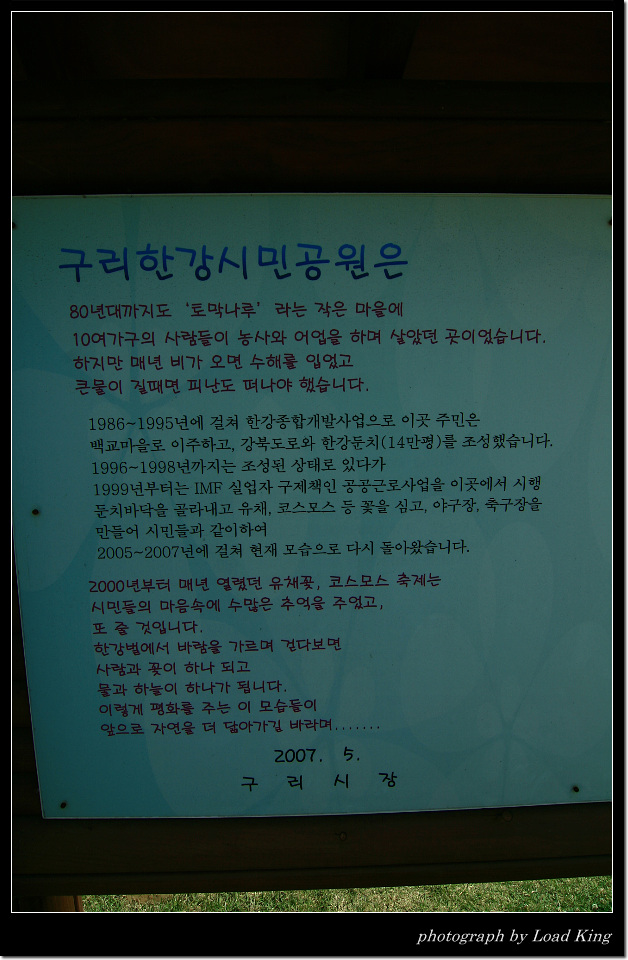 구리한강시민공원은
80년대까지도 '토막나루' 라는 작은 마을에
10여가구의 사람들이 농사와 어업을 하며 살았던 곳이었습니다.
하지만 매년 비가 오면 수해를 입었고
큰물이 질때면 피난도 떠나야 했습니다.
1986~1995년에 걸쳐 한강종합개발사업으로 이곳 주민은
백교마을로 이주하고, 강북도로와 한강둔치(14만평)를 조성했습니다.
1996~1998년까지는 조성된 상태로 있다가
1999년부터는 IMF 실업자 구제책인 공공근로사업을 이곳에서 시행
둔치바닥을 골라내고 유채, 코스모스 등 꽃을 심고, 야구장, 축구장을
만들어 시민들과 같이하여
2005~2007년에 걸쳐 현재 모습으로 다시 돌아왔습니다.
2000년부터 매년 열렸던 유채꽃, 코스모스 축제는
시민들의 마음속에 수많은 추억을 주었고,
또 줄 것입니다.
한강벌에서 바람을 가르며 걷다보면
사람과 꽃이 하나 되고
물과 하늘이 하나가 됩니다.
이렇게 평화를 주는 이 모습들이
앞으로 자연을 더 닮아가길 바라며.......
2007. 5.
구 리 시 장
photograph by Load King